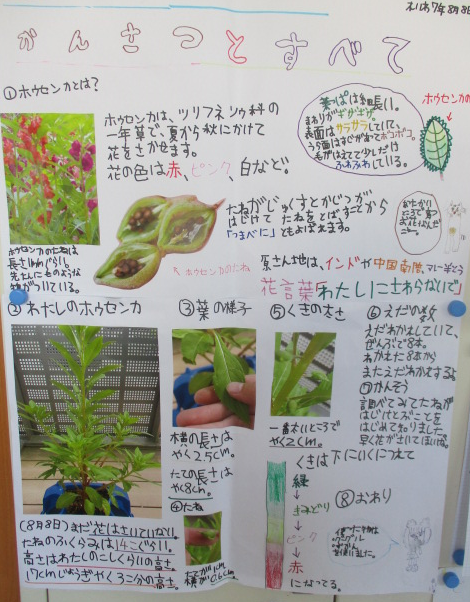 かんさつとすべて
①ホウセンカとは?
ホウセンカは、ツリフネソウ科の
一年草で、夏から秋にかけて
花をさかせます。
花の色は赤、ピンク、白など。
葉っぱは細長い。
まわりがギザギザ。
表面はサラサラしていて、
うら面はすじがあってボコボコ。
毛がはえてて少しだけ
ふわふわしている。
ホウセンカの
たねがじゅくすとかじつが
はじけて たねをとばすことから
「つまべに」ともよばれます。
ホウセンカのたね
ホウセンカのたねは
長さ1mmぐらい。
げんさん地は、インドや中国南部、マレー半とう
花言葉「わたしにさわらないで」
②わたしのホウセンカ
(8月8日)まだ花はさいていない。
たねのふくらみは14こぐらい。
高さはわたしのこしぐらいの高さ。
17cmじょうぎやく3こ分の高さ。
③葉の様子
横の長さは
やく2.5cm。
たての長さは
やく8cm。
④たね
たてが1cm
横が0.6cm
⑤くきの太さ
一番太いところで
やく2cm。
くきは下にいくにつれて
緑
↓
きみどり
↓
ピンク
↓
赤
になってる。
⑥えだの数
えだわかれしていて、
ぜんぶで8本。
わかれた8本から
またえだわかれする。
⑦かんそう
調べてみてたねが
はじけとぶことを
はじめて知りました。
早く花がさいてほしいな。
⑧おわり